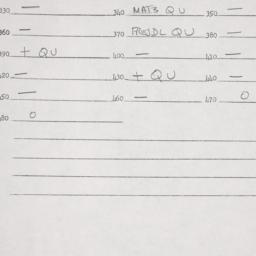 330 — 340 MAT3 QU 350 —
360 — 370 QU 380 —
390 + QU 400 — 410 —
420 — 430 + QU 440 —
450 — 460 — 470 0
480 0